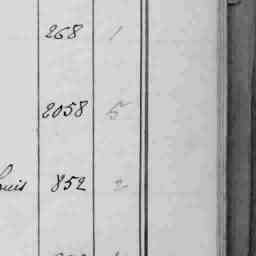 268 1
2058 5
ouis 852 2